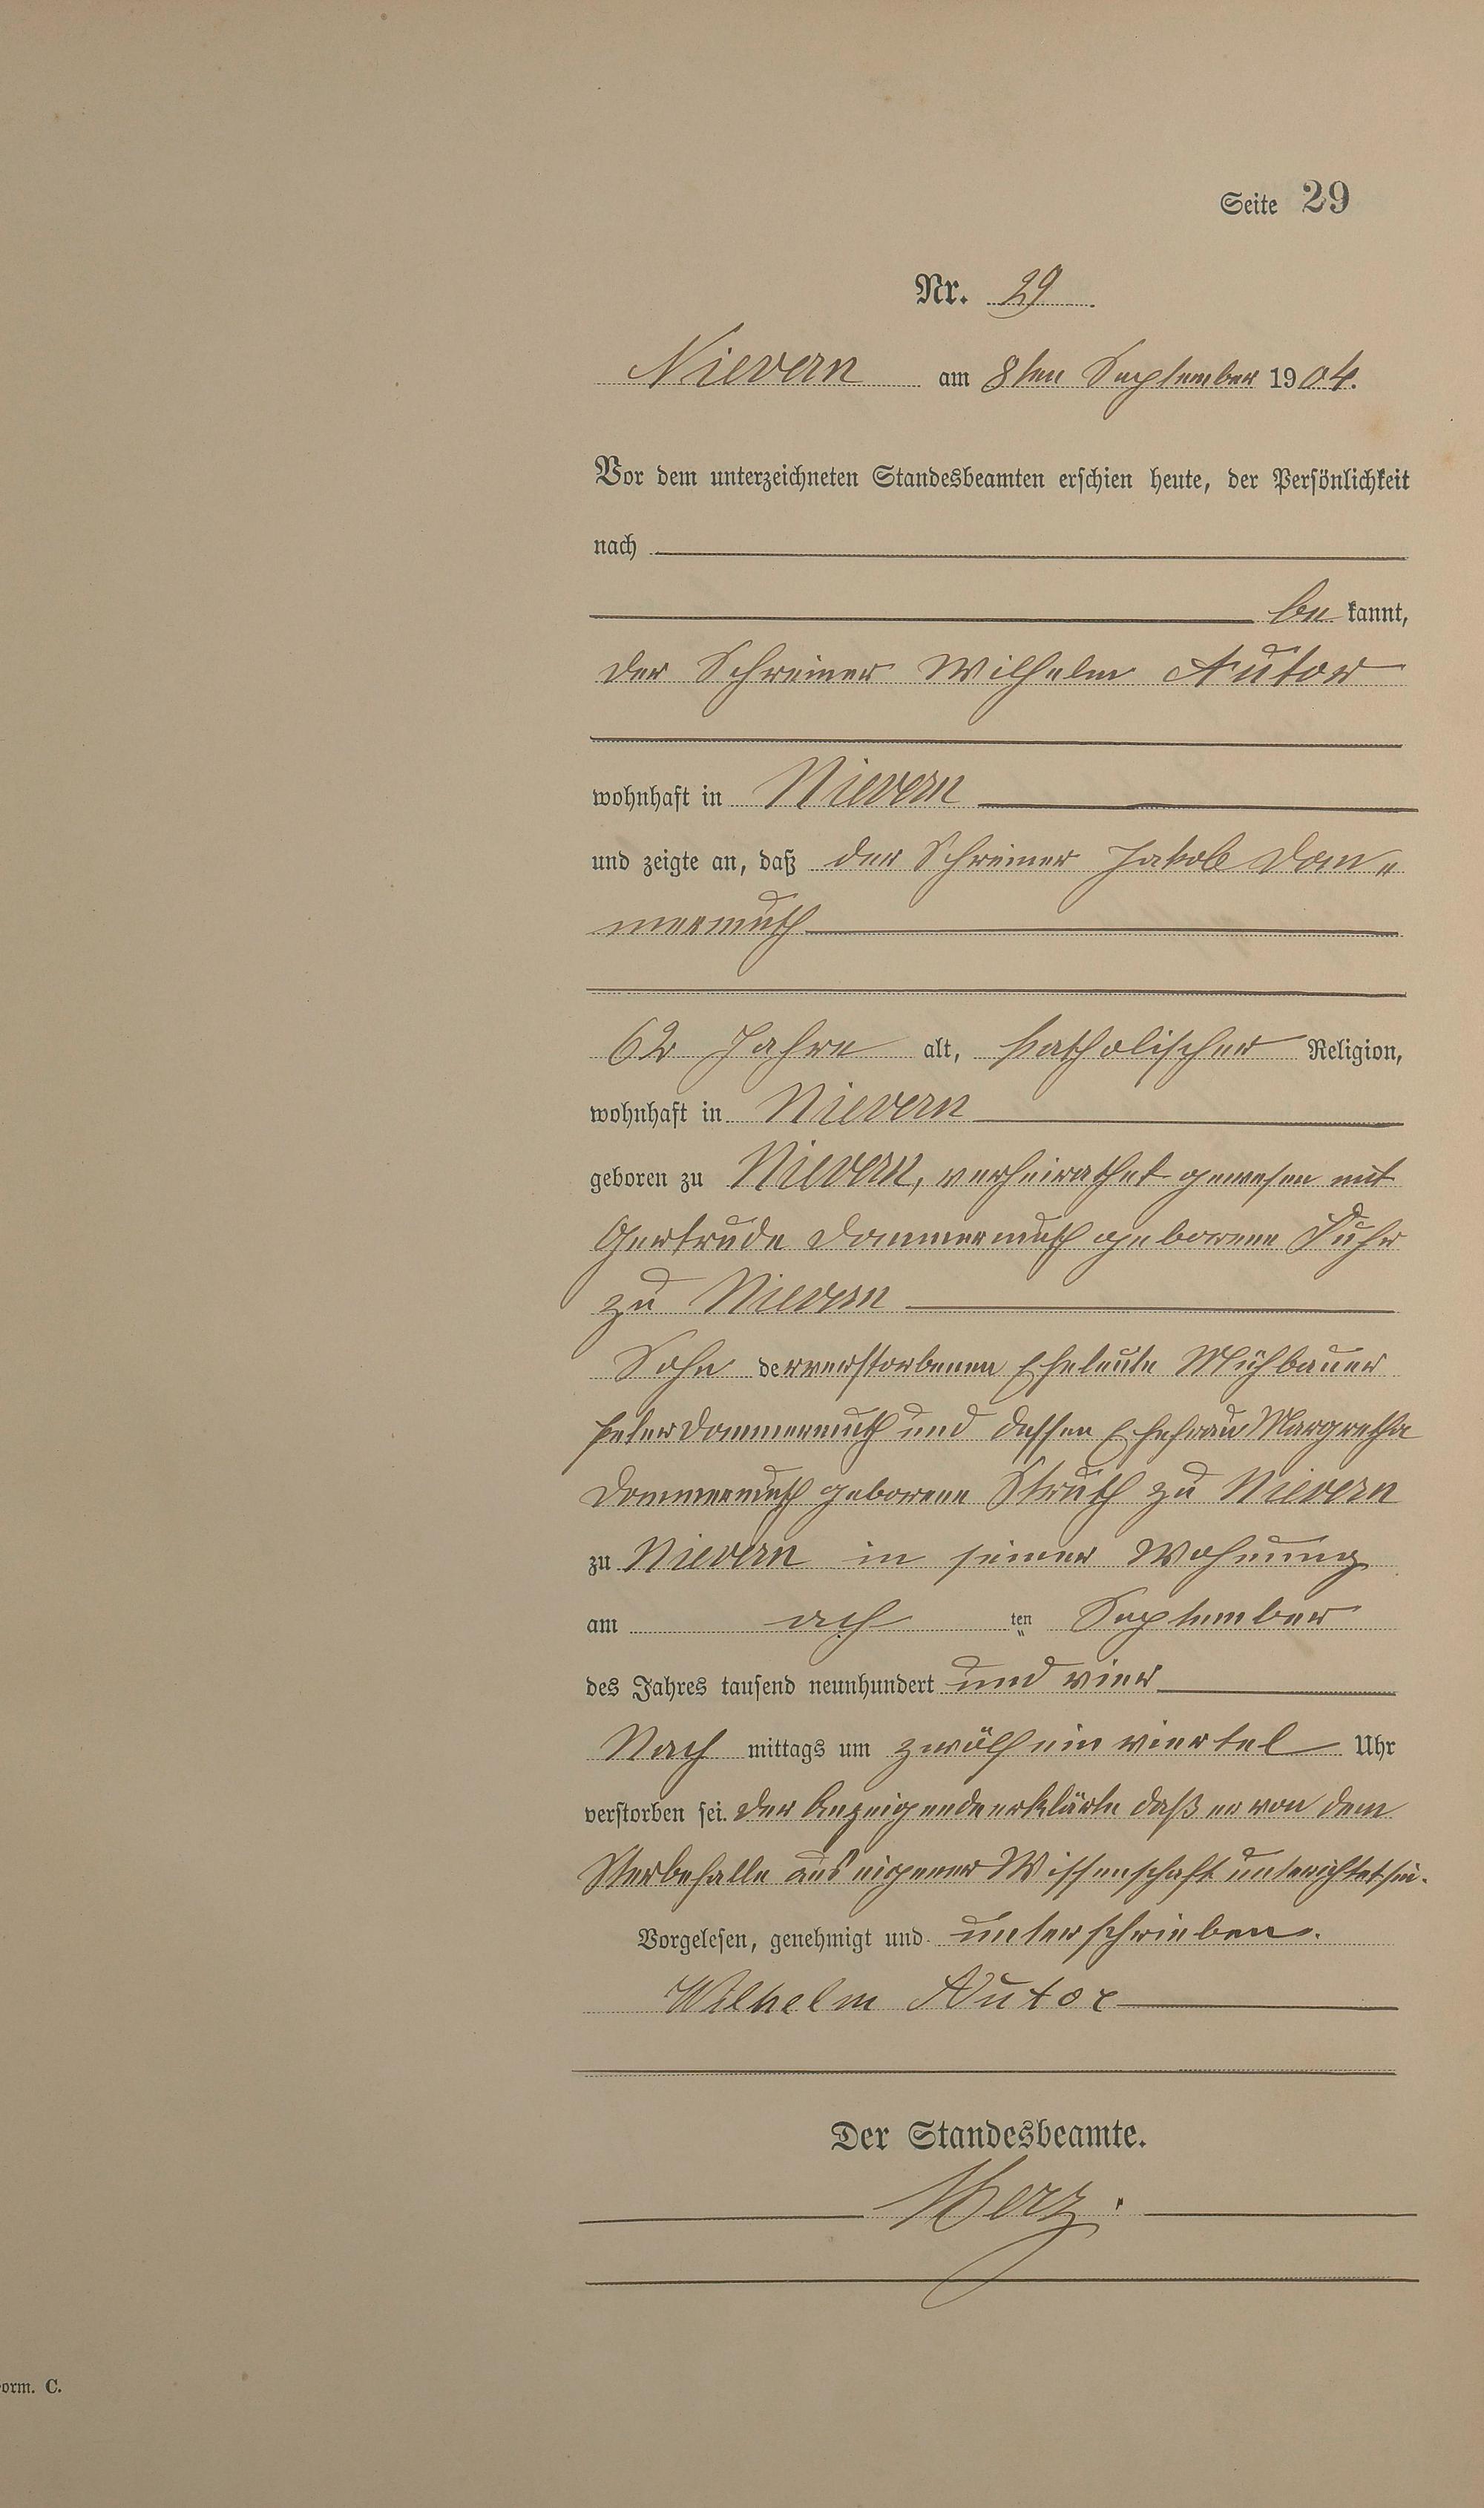 Seite 29
Nr. 29
Nievern am 8ten September 1904.
Vor dem unterzeichneten Standesbeamten erschien heute, der Persönlichkeit
nach
be kannt,
der Schreiner Wilhelm Autor
wohnhaft in Nievern
und zeigte an, daß der Schreiner Jakob Dom„
mermuth
62 Jahre alt, katholischer Religion,
wohnhaft in Nievern
geboren zu Nievern, verheirathet gewesen mit
Gertrude Dommermuth geborene
zu Nievern
Sohn der verstorbenen Eheleute
Peter Dommermuth und dessen Ehefrau Margretha
Dommermuth geborene Struth zu Nievern
zu Nievern in seiner Wohnung
am ach ten September
des Jahres tausend neunhundert und vier
Nach mittags um zwölf ein viertel Uhr
verstorben sei. Der Anzeigende erklärte daß er von dem
Sterbefalle aus eigener Wissenschaft unterichtet sei.
Vorgelesen, genehmigt und unterschrieben.
Wilhelm Autor
Der Standesbeamte.
Merz.
orm. C.